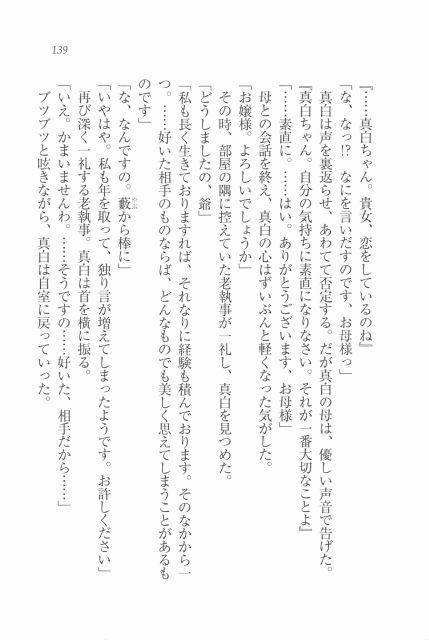 139
『……真白ちゃん。貴女、恋をしているのね』
「な、なっ!?　なにを言いだすのです、お母様っ」
真白は声を裏返らせ、あわてて否定する。だが真白の母は、優しい声音で告げた。
『真白ちゃん。自分の気持ちに素直になりなさい。それが一番大切なことよ』
「……素直に。……はい。ありがとうございます、お母様」
母との会話を終え、真白の心はずいぶんと軽くなった気がした。
「お嬢様。よろしいでしょうか」
その時、部屋の隅に控えていた老執事が一礼し、真白を見つめた。
「どうしましたの、爺」
「私も長く生きておりますれば、それなりに経験も積んでおります。そのなかから一
つ。……好いた相手のものならば、どんなものでも美しく思えてしまうことがあるも
のです」
「な、なんですの。藪から棒に」
やぶ
「いやはや。私も年を取って、独り言が増えてしまったようです。お許しください」
再び深く一礼する老執事。真白は首を横に振る。
「いえ。かまいませんわ。……そうですの……好いた、相手だから……」
ブツブツと呟きながら、真白は自室に戻っていった。